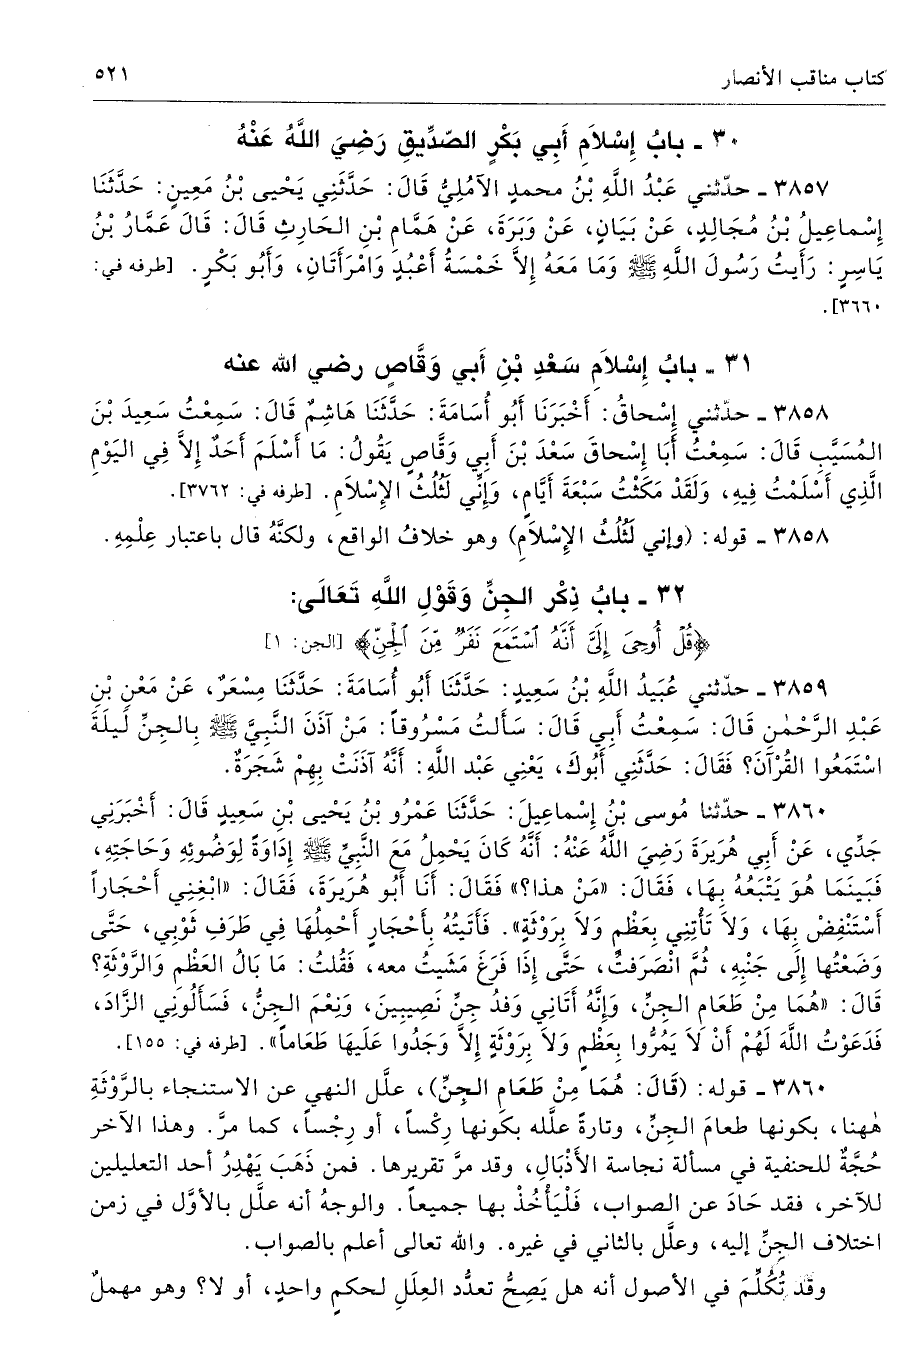 كتاب مناقب الأنصار ٥٢١
٣٠ ـ بابُ إِسْلاَمِ أَبِي بَكْرٍ الصِّدِّيقِ رَضِيَ اللَّهُ عَنْهُ
٣٨٥٧ ـ حدّثني عَبْدُ اللَّهِ بْنُ محمدٍ الآمُلِيُّ قَالَ: حَدَّثَنِي يَحْيى بْنُ مَعِينٍ: حَدَّثَنَا
إِسْماعِيلُ بْنُ مُجَالِدٍ، عَنْ بَيَانٍ، عَنْ وَبَرَةَ، عَنْ هَمَّامِ بْنِ الحَارِثِ قَالَ: قَالَ عَمَّارُ بْنُ
يَاسِرٍ: رَأَيتُ رَسُولَ اللَّهِ ﷺ وَمَا مَعَهُ إِلاَّ خَمْسَةُ أَعْبُدٍ وَامْرَأَتَانِ، وَأَبُو بَكْرٍ. [طرفه في:
٣٦٦٠].
٣١ ـ بابُ إِسْلاَمِ سَعْدِ بْنِ أَبي وَقَّاصٍ رضي الله عنه
٣٨٥٨ ـ حدّثني إِسْحاقُ: أَخْبَرَنَا أَبُو أُسَامَةَ: حَدَّثَنَا هَاشِمٌ قَالَ: سَمِعْتُ سَعِيدَ بْنَ
المُسَيَّبِ قَالَ: سَمِعْتُ أَبَا إِسْحاقَ سَعْدَ بْنَ أَبِي وَقَّاصٍ يَقُولُ: مَا أَسْلَمَ أَحَدٌ إِلاَّ فِي اليَوْمِ
الَّذِي أَسْلَمْتُ فِيهِ، وَلَقَدْ مَكَثْتُ سَبْعَةَ أَيَّامٍ، وَإِنِّي لَثُلُثُ الإِسْلاَمِ. [طرفه في: ٣٧٦٢].
٣٨٥٨ ـ قوله: (وإني لَثُلُثُ الإِسْلاَمِ) وهو خلافُ الواقع، ولكنَّهُ قال باعتبار عِلْمِهِ.
٣٢ ـ بابُ ذِكْرِ الجِنِّ وَقَوْلِ اللَّهِ تَعَالَى:
﴿قُلْ أُوحِيَ إِلَيَّ أَنَّهُ ٱسْتَمَعَ نَفَرٌ مِّنَ ٱلْجِنِّ﴾ [الجن: ١]
٣٨٥٩ ـ حدّثني عُبَيدُ اللَّهِ بْنُ سَعِيدٍ: حَدَّثَنَا أَبُو أُسَامَةَ: حَدَّثَنَا مِسْعَرٌ، عَنْ مَعْنِ بْنِ
عَبْدِ الرَّحْمٰنِ قَالَ: سَمِعْتُ أَبِي قَالَ: سَأَلتُ مَسْرُوقاً: مَنْ آذَنَ النَّبِيَّ ﷺ بِالجِنِّ لَيلَةَ
اسْتَمَعُوا القُرْآنَ؟ فَقَالَ: حَدَّثَنِي أَبُوكَ، يَعْنِي عَبْدَ اللَّهِ: أَنَّهُ آذَنَتْ بِهِمْ شَجَرَةٌ.
٣٨٦٠ ـ حدّثنا مُوسى بْنُ إِسْماعِيلَ: حَدَّثَنَا عَمْرُو بْنُ يَحْيى بْنِ سَعِيدٍ قَالَ: أَخْبَرَنِي
جَدِّي، عَنْ أَبِي هُرَيرَةَ رَضِيَ اللَّهُ عَنْهُ: أَنَّهُ كَانَ يَحْمِلُ مَعَ النَّبِيِّ ﷺ إِدَاوَةً لِوَضُوئِهِ وَحَاجَتِهِ،
فَبَينَمَا هُوَ يَتْبَعُهُ بِهَا، فَقَالَ: «مَنْ هذا؟» فَقَالَ: أَنَا أَبُو هُرَيرَةَ، فَقَالَ: «ابْغِنِي أَحْجَاراً
أَسْتَنْفِضْ بِهَا، وَلاَ تَأْتِنِي بِعَظْمٍ وَلاَ بِرَوْثَةٍ». فَأَتَيتُهُ بِأَحْجَارٍ أَحْمِلُهَا فِي طَرَفِ ثَوْبِي، حَتَّى
وَضَعْتُها إِلَى جَنْبِهِ، ثُمَّ انْصَرَفتُ، حَتَّى إِذَا فَرَغَ مَشَيتُ معه، فَقُلتُ: مَا بَالُ العَظْمِ وَالرَّوْثَةِ؟
قَالَ: «هُمَا مِنْ طَعَامِ الجِنِّ، وَإِنَّهُ أَتَانِي وَفدُ جِنِّ نَصِيبِينَ، وَنِعْمَ الجِنُّ، فَسَأَلُونِي الزَّادَ،
فَدَعَوْتُ اللَّهَ لَهُمْ أَنْ لاَ يَمُرُّوا بِعَظْمٍ وَلاَ بِرَوْثَةٍ إِلاَّ وَجَدُوا عَلَيهَا طَعَاماً». [طرفه في: ١٥٥].
٣٨٦٠ ـ قوله: (قَالَ: هُمَا مِنْ طَعَامِ الجِنِّ)، علَّل النهي عن الاستنجاء بالرَّوْثَةِ
ههُنا، بكونها طعامَ الجنِّ، وتارةً علَّله بكونها رِكْساً، أو رِجْساً، كما مرَّ. وهذا الآخر
حُجَّةٌ للحنفية في مسألة نجاسة الأَذْبَالِ، وقد مرَّ تقريرها. فمن ذَهَبَ يَهْدِرُ أحد التعليلين
للآخر، فقد حَادَ عن الصواب، فَلْيَأْخُذْ بها جميعاً. والوجهُ أنه علَّل بالأوَّل في زمن
اختلاف الجِنِّ إليه، وعلَّل بالثاني في غيره. والله تعالى أعلم بالصواب.
وقد تُكُلِّمَ في الأصول أنه هل يَصِحُّ تعدُّد العِلَلِ لحكمٍ واحدٍ، أو لا؟ وهو مهملٌ